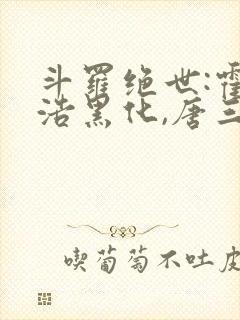 斗羅绝世:霍
浩黑化,唐三
喫葡萄不吐皮